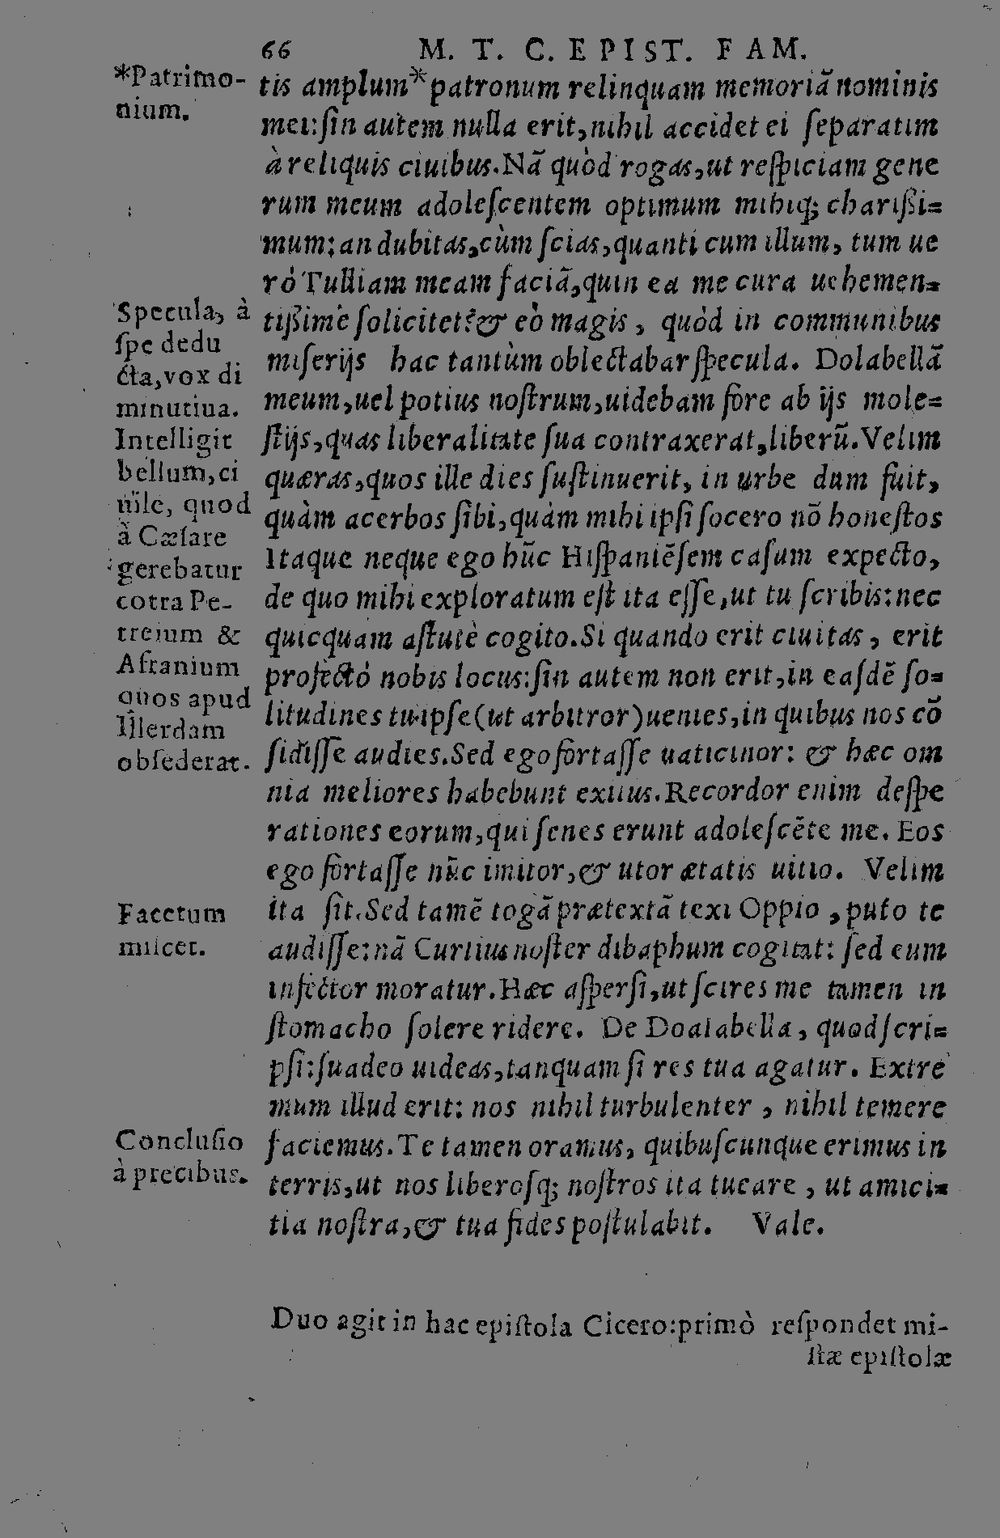 66 M. T. C. EPIST. FAM.
*Patrimo-
nium.
tis amplum*patronum relinquam memoriã nominis
mei:ſin autem nulla erit,nihil accidet ei ſeparatim
à reliquis ciuibus.Nã quòd rogas,ut reſpiciam gene
rum meum adoleſcentem optimum mihiq; chariſſi=
mum:an dubitas,cùm ſcias,quanti cum illum, tum ue
rò Tulliam meam faciã,quin ea me cura uehemen=
tiſſimè ſolicitet?& eò magis, quòd in communibus
miſerijs hac tantùm oblectabar ſpecula. Dolabellã
meum,uel potius noſtrum,uidebam fore ab ijs mole=
ſtijs,quas liberalitate ſua contraxerat,liberũ.Velim
quæras,quos ille dies ſuſtinuerit, in urbe dum fuit,
quàm acerbos ſibi,quàm mihi ipſi ſocero nõ honeſtos
Itaque neque ego hũc Hiſpaniẽſem caſum expecto,
de quo mihi exploratum eſt ita eſſe,ut tu ſcribis:nec
quicquam aſtutè cogito.Si quando erit ciuitas, erit
profectò nobis locus:ſin autem non erit,in eaſdẽ ſo=
litudines tu ipſe(ut arbitror)uenies,in quibus nos cõ
ſidiſſe audies.Sed ego fortaſſe uaticinor: & hæc om
nia meliores habebunt exitus.Recordor enim deſpe
rationes eorum,qui ſenes erunt adoleſcẽte me. Eos
ego fortaſſe nũc imitor,& utor ætatis uitio. Velim
ita ſit.Sed tamẽ togã prætextã texi Oppio, puto te
audiſſe:nã Curtius noſter dibaphum cogitat: ſed eum
infector moratur.Hæc aſperſi,ut ſcires me tamen in
ſtomacho ſolere ridere. De Doalabella, quod ſcri=
pſi:ſuadeo uideas,tanquam ſi res tua agatur. Extre
mum illud erit: nos nihil turbulenter, nihil temere
faciemus.Te tamen oramus, quibuſcunque erimus in
terris,ut nos liberoſq; noſtros ita tueare, ut amici=
tia noſtra,& tua fides poſtulabit. Vale.
Specula, à
ſpe dedu
cta,vox di
minutiua.
Intelligit
bellum,ci
uile, quod
à Cæſare
gerebatur
cõtra Pe-
treium &
Afranium
quos apud
Illerdam
obſederat.
Facetum
miſcet.
Concluſio
à precibus.
Duo agit in hac epiſtola Cicero:primò reſpondet mi-
ſtæ epiſtolæ